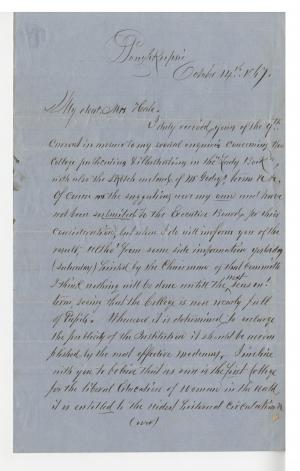 Po'Keepsie
October 14th 1867.
My dear Mrs Hale.
I duly received yours of the 9th
Current in answer to my several enquiries concerning the
College publication & Illustration in the Lady's Book
with also the sketch inclosed of Mr Godey's terms &c.
Of course the suggestions were my own and have
not been submitted to the Executive Board for their
Consideration, but when I do will inform you of the
result, altho' from some side information yesterday
(Saturday) by the Chairman of that Committee
I think nothing will be done until the next season
term seeing that the College is now nearly full
of Pupils. Whenever it is determined to enlarge
the publicity of the Institution it should be accom
plished by the most effective medium. I incline
with you to believe that as ours is the first College
for the liberal Education of Woman in the World,
it is entitled to the widest Historical Circulation &
(over)